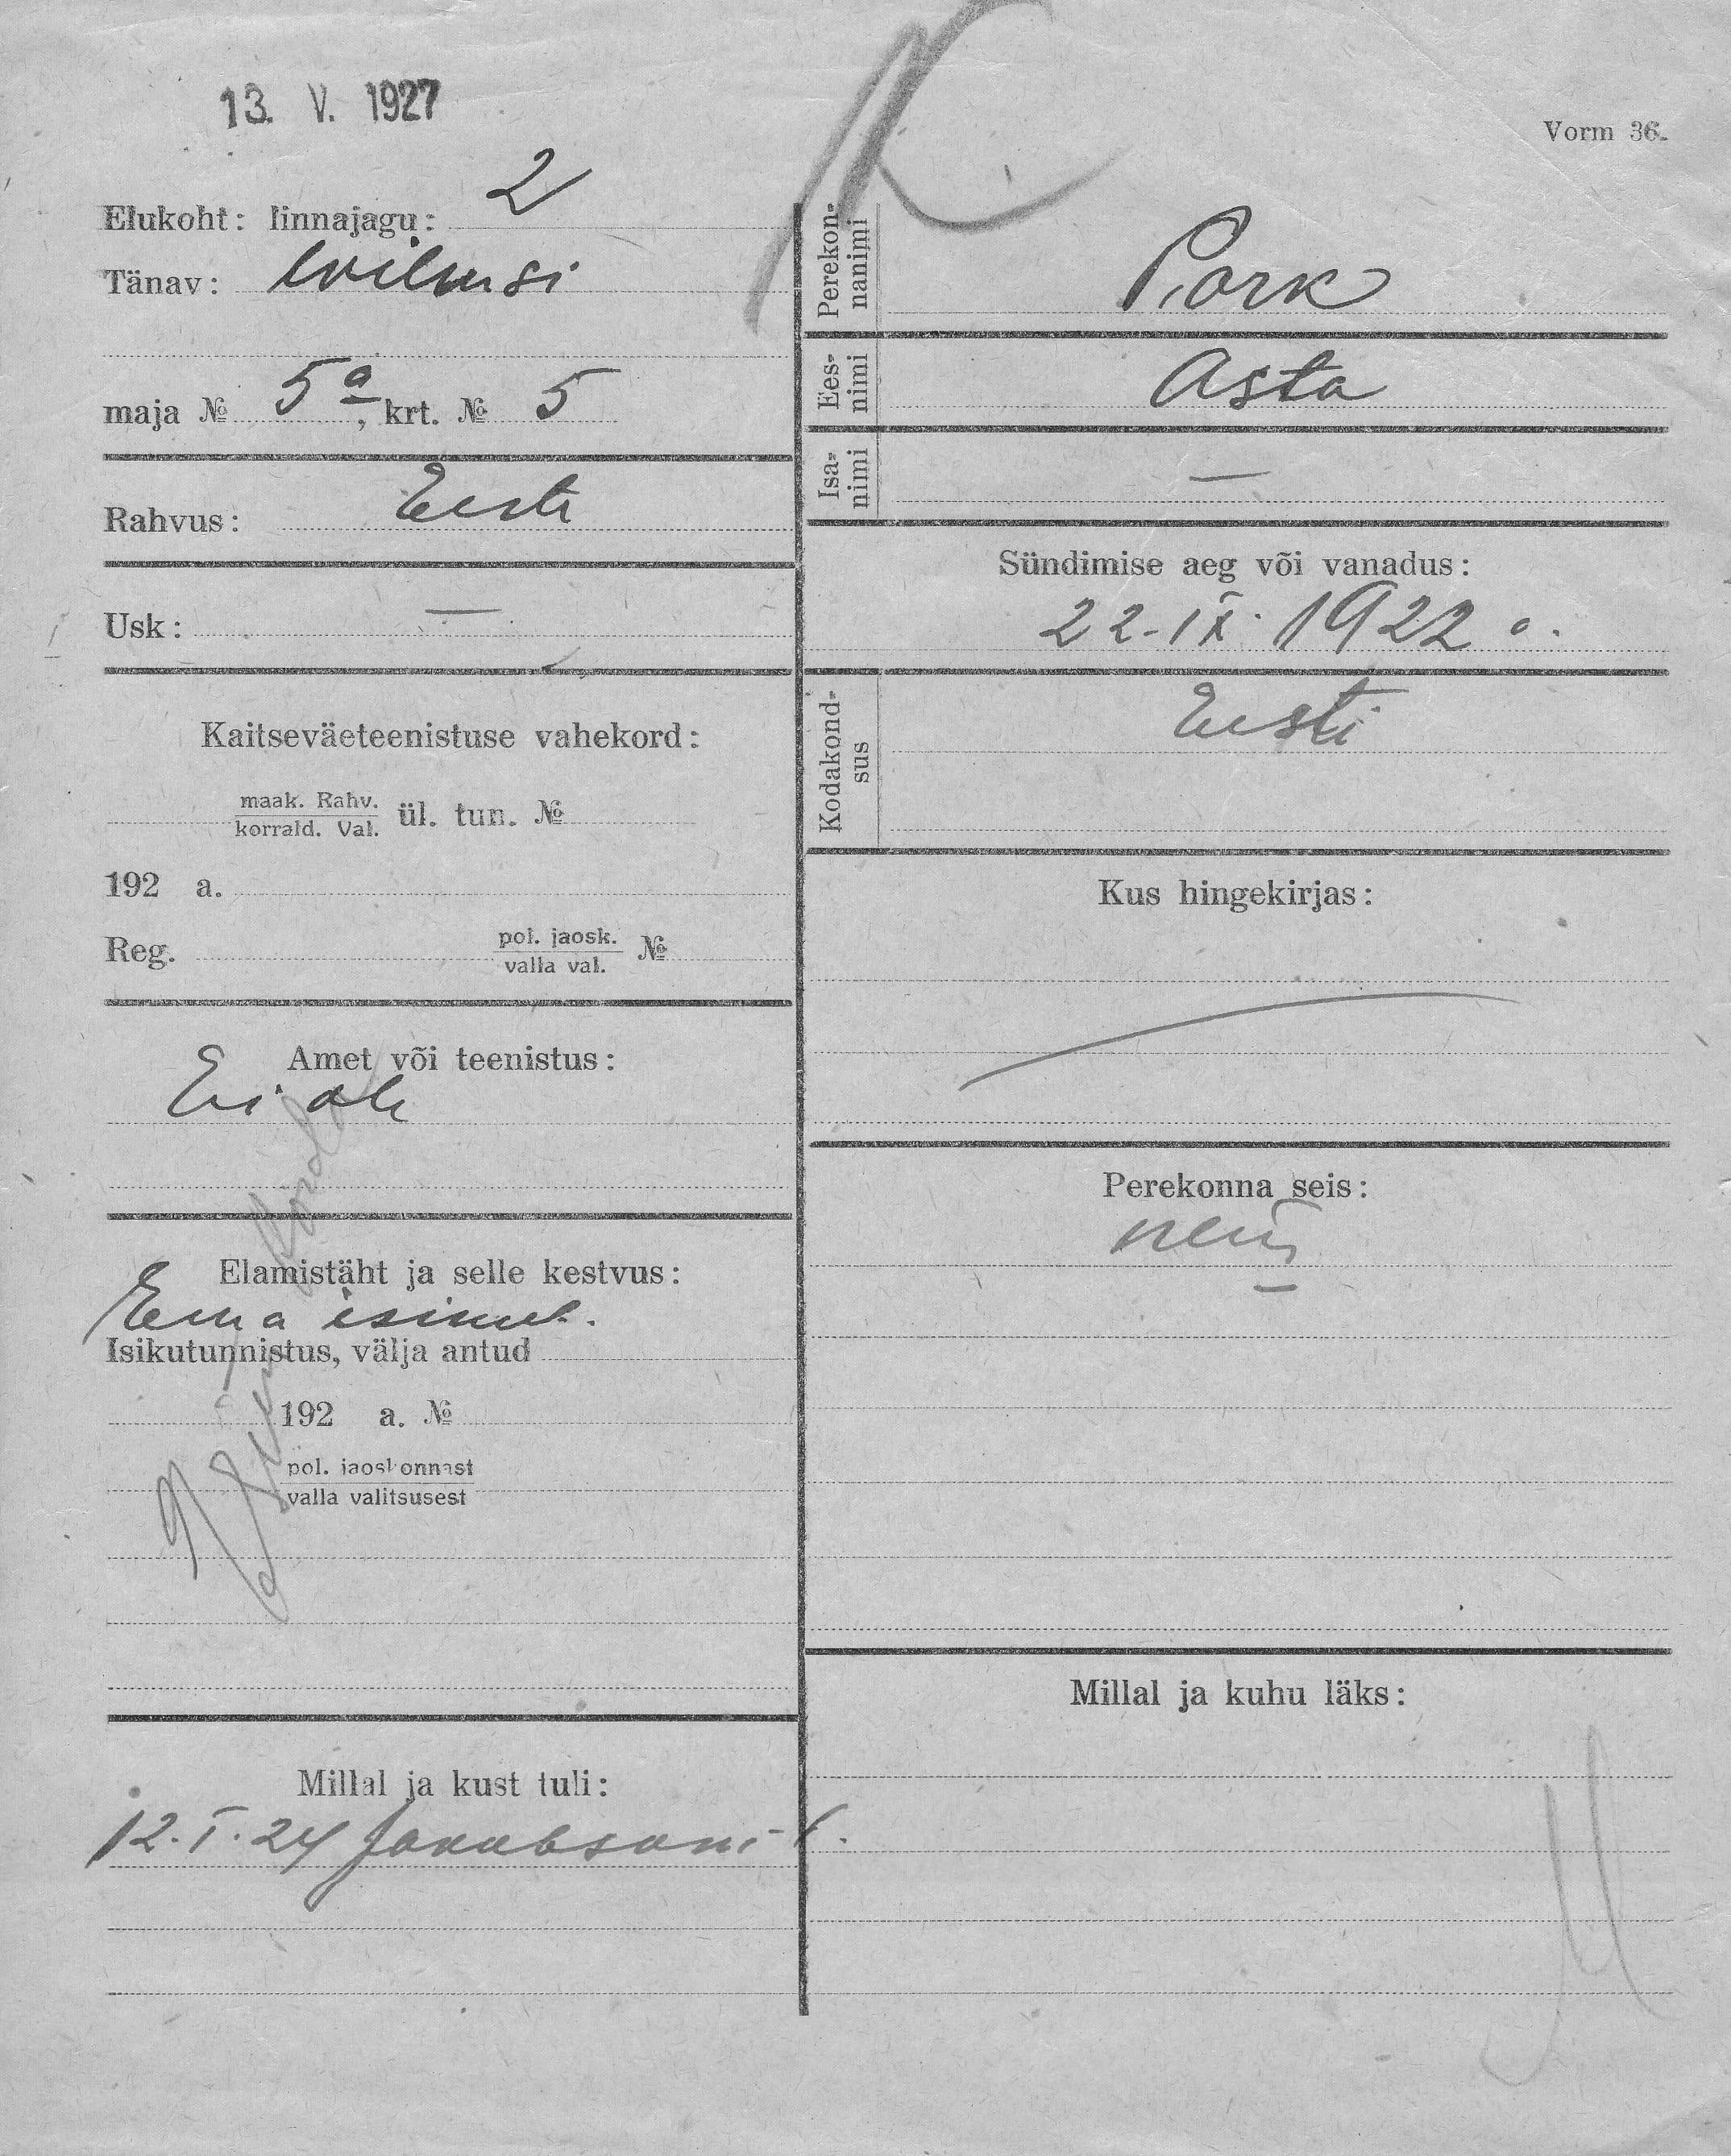 13. V. 1927
Vorm 36.
Elukoht: linnajagu: 2
Tänav: Wilmsi
maja № 5a, krt. № 5
Rahvus: Eesti
Usk: —
Kaitseväeteenistuse vahekord:
maak. Rahv.
korrald. Val. ül. tun. №
192 a.
Reg. pol. jaosk.
valla val. №
Amet või teenistus:
Ei ole
Elamistäht ja selle kestvus:
Ema
Isikutunnistus, välja antud
192 a. №
pol. jaoskonnast
valla valitsusest
Millal ja kust tuli:
12.I.24 Jakobsoni t.
Perekon-
nanimi
Pork
Ees-
nimi
Asta
Isa-
nimi
—
Sündimise aeg või vanadus:
22-IX-1922
Kodakond-
sus
Eesti
Kus hingekirjas:
Perekonna seis:
Millal ja kuhu läks: